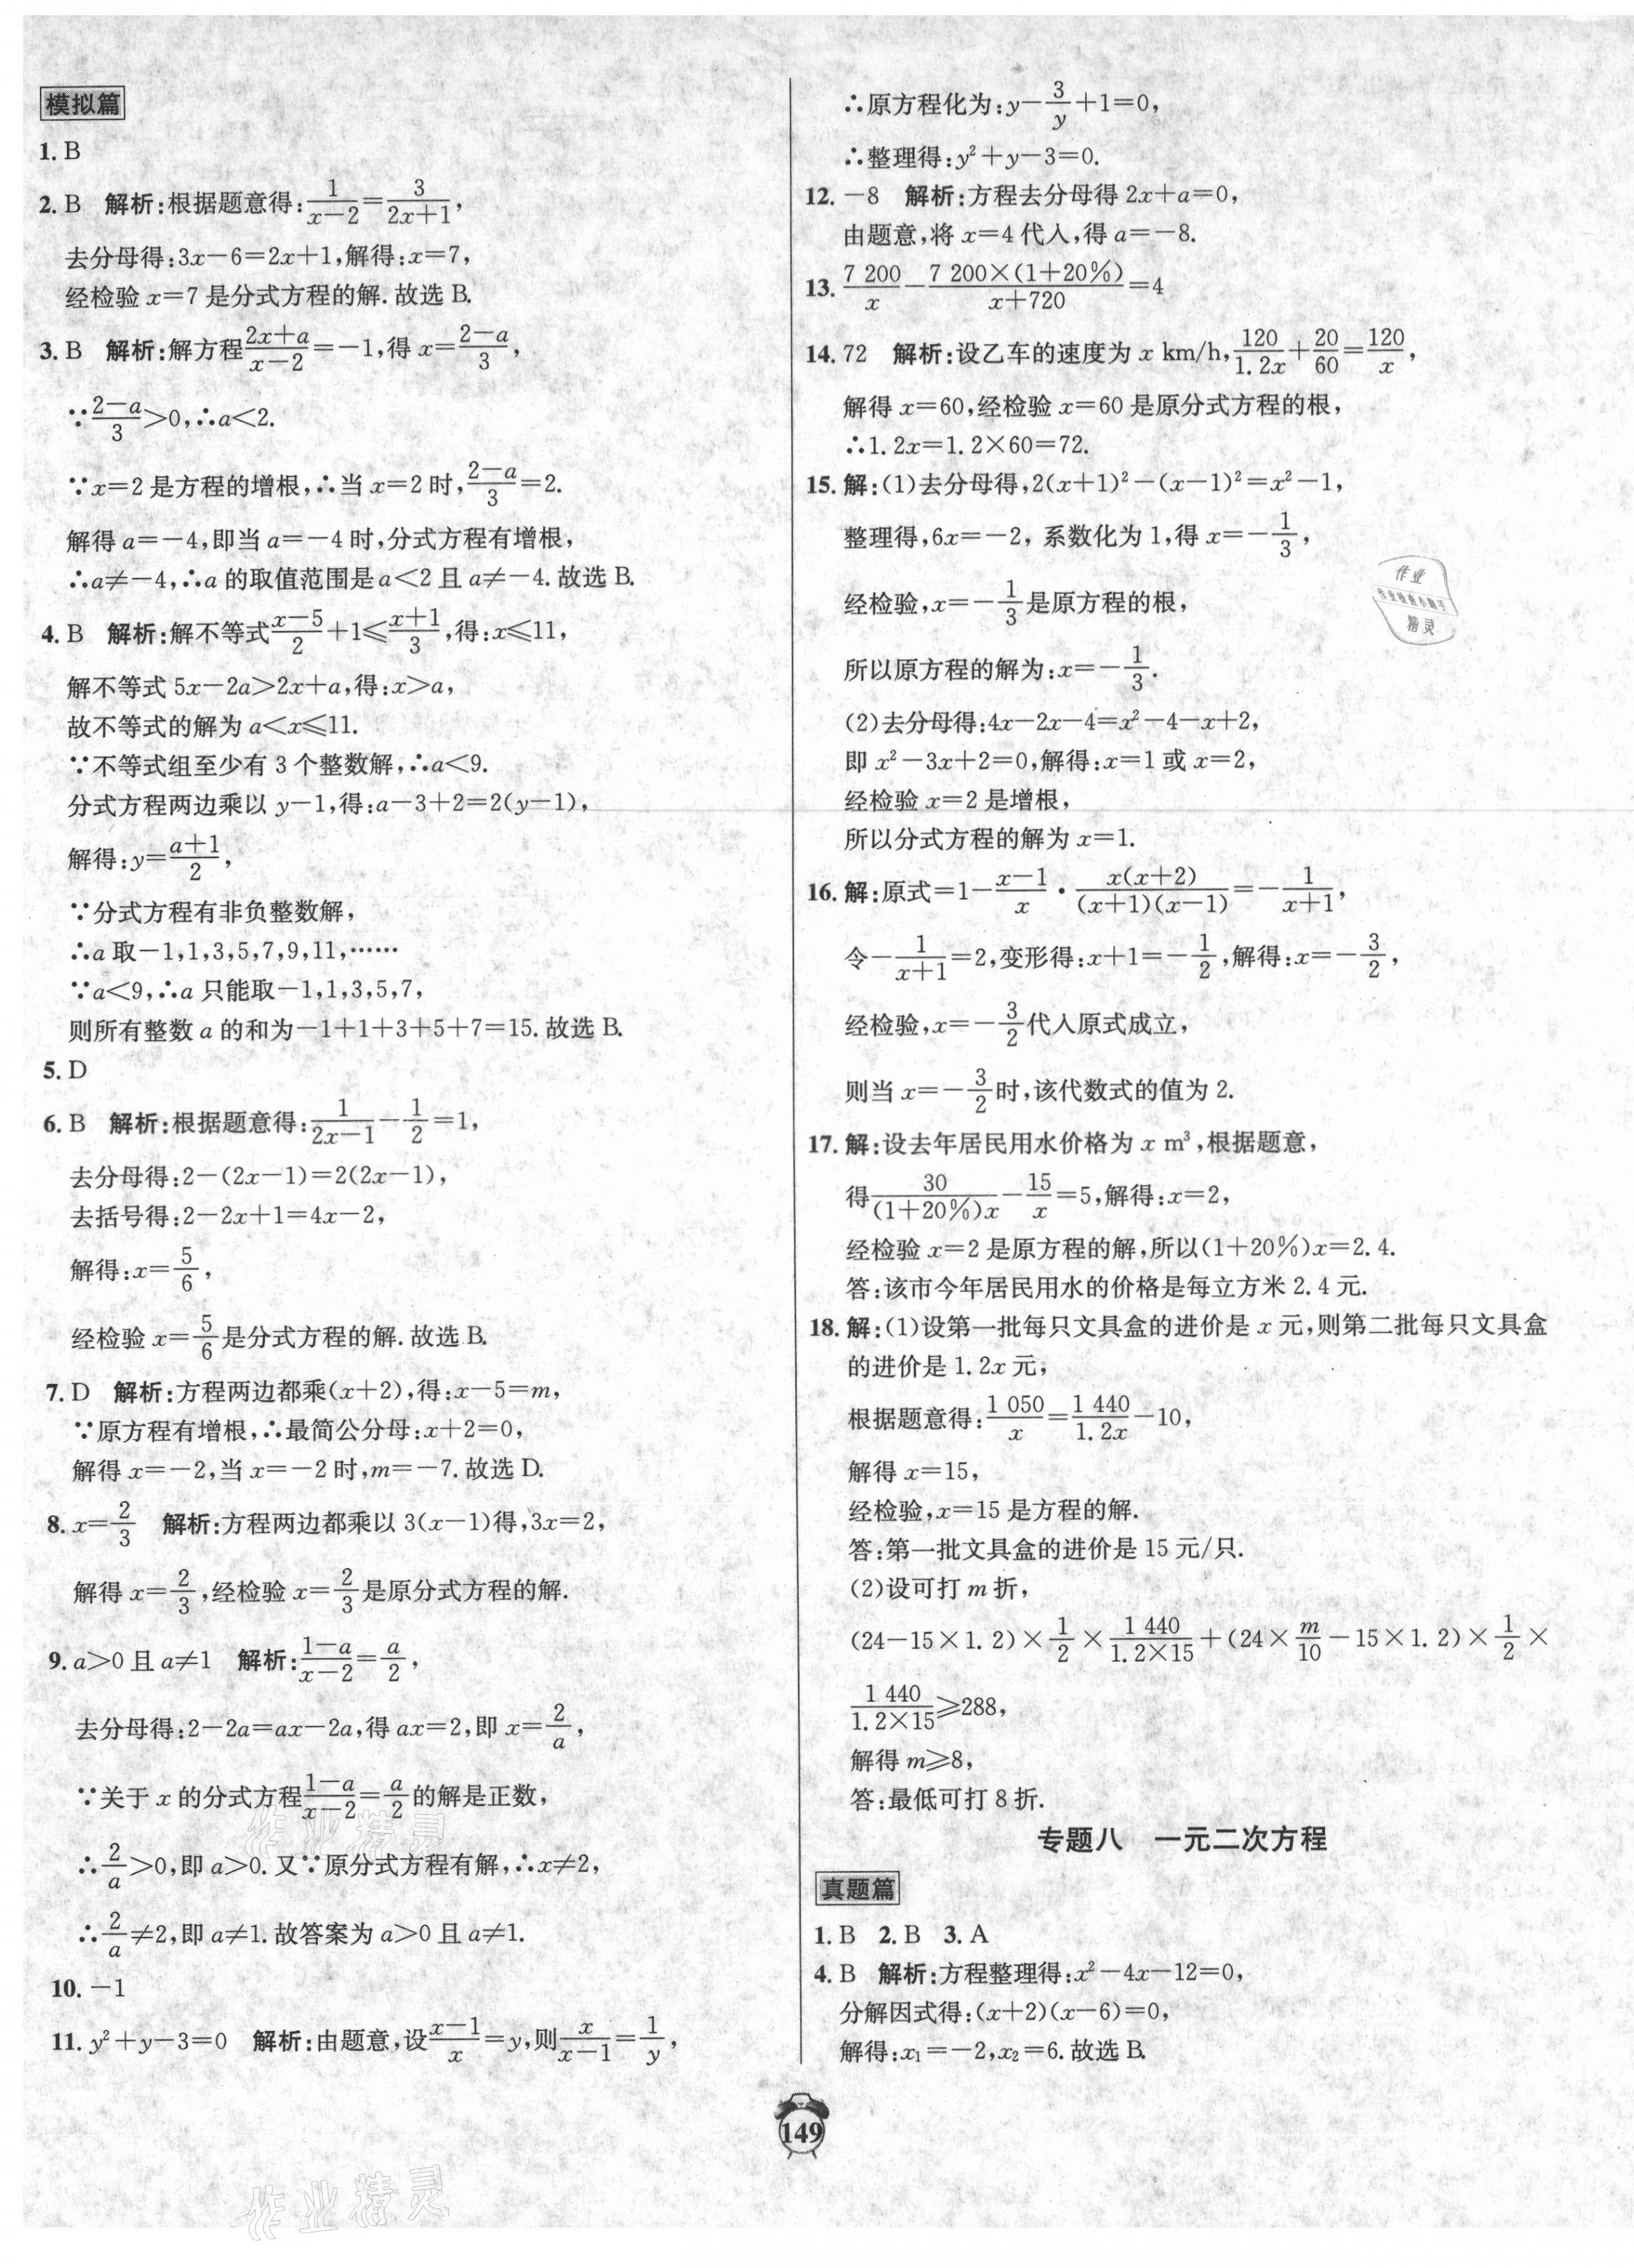 模拟篇
1. B
2. B 解析:根据题意得:1/(x-2)=3/(2x+1),
去分母得:3x-6=2x+1,解得:x=7,
经检验 x=7 是分式方程的解.故选 B.
3. B 解析:解方程(2x+a)/(x-2)=-1,得 x=(2-a)/3,
∵(2-a)/3>0,∴a<2.
∵x=2 是方程的增根,∴当 x=2 时,(2-a)/3=2.
解得 a=-4,即当 a=-4 时,分式方程有增根,
∴a≠-4,∴a 的取值范围是 a<2 且 a≠-4.故选 B.
4. B 解析:解不等式(x-5)/2+1⩽(x+1)/3,得:x⩽11,
解不等式 5x-2a>2x+a,得:x>a,
故不等式的解为 a<x⩽11.
∵不等式组至少有 3 个整数解,∴a<9.
分式方程两边乘以 y-1,得:a-3+2=2(y-1),
解得:y=(a+1)/2,
∵分式方程有非负整数解,
∴a 取-1,1,3,5,7,9,11,……
∵a<9,∴a 只能取-1,1,3,5,7,
则所有整数 a 的和为-1+1+3+5+7=15.故选 B.
5. D
6. B 解析:根据题意得:1/(2x-1)-1/2=1,
去分母得:2-(2x-1)=2(2x-1),
去括号得:2-2x+1=4x-2,
解得:x=5/6,
经检验 x=5/6是分式方程的解.故选 B.
7. D 解析:方程两边都乘(x+2),得:x-5=m,
∵原方程有增根,∴最简公分母:x+2=0,
解得 x=-2,当 x=-2 时,m=-7.故选 D.
8. x=2/3 解析:方程两边都乘以 3(x-1)得,3x=2,
解得 x=2/3,经检验 x=2/3是原分式方程的解.
9. a>0 且 a≠1 解析:(1-a)/(x-2)=a/2,
去分母得:2-2a=ax-2a,得 ax=2,即 x=2/a,
∵关于 x 的分式方程(1-a)/(x-2)=a/2的解是正数,
∴2/a>0,即 a>0.又∵原分式方程有解,∴x≠2,
∴2/a≠2,即 a≠1.故答案为 a>0 且 a≠1.
10. -1
11. y²+y-3=0 解析:由题意,设(x-1)/x=y,则x/(x-1)=1/y,
∴原方程化为:y-3/y+1=0,
∴整理得:y²+y-3=0.
12. -8 解析:方程去分母得 2x+a=0,
由题意,将 x=4 代入,得 a=-8.
13. 7 200/x-7 200×(1+20%)/(x+720)=4
14. 72 解析:设乙车的速度为 x km/h,120/1.2x+20/60=120/x,
解得 x=60,经检验 x=60 是原分式方程的根,
∴1.2x=1.2×60=72.
15. 解:(1)去分母得,2(x+1)²-(x-1)²=x²-1,
整理得,6x=-2, 系数化为 1,得 x=-1/3,
经检验,x=-1/3是原方程的根,
所以原方程的解为:x=-1/3.
(2)去分母得:4x-2x-4=x²-4-x+2,
即 x²-3x+2=0,解得:x=1 或 x=2,
经检验 x=2 是增根,
所以分式方程的解为 x=1.
16. 解:原式=1-(x-1)/x·x(x+2)/((x+1)(x-1))=-1/(x+1),
令-1/(x+1)=2,变形得:x+1=-1/2,解得:x=-3/2,
经检验,x=-3/2代入原式成立,
则当 x=-3/2时,该代数式的值为 2.
17. 解:设去年居民用水价格为 x m³,根据题意,
得30/((1+20%)x)-15/x=5,解得:x=2,
经检验 x=2 是原方程的解,所以(1+20%)x=2.4.
答:该市今年居民用水的价格是每立方米 2.4 元.
18. 解:(1)设第一批每只文具盒的进价是 x 元,则第二批每只文具盒
的进价是 1.2x 元,
根据题意得:1 050/x=1 440/1.2x-10,
解得 x=15,
经检验,x=15 是方程的解.
答:第一批文具盒的进价是 15 元/只.
(2)设可打 m 折,
(24-15×1.2)×1/2×1 440/(1.2×15)+(24×m/10-15×1.2)×1/2×
1 440/(1.2×15)⩾288,
解得 m⩾8,
答:最低可打 8 折.
专题八 一元二次方程
真题篇
1. B 2. B 3. A
4. B 解析:方程整理得:x²-4x-12=0,
分解因式得:(x+2)(x-6)=0,
解得:x₁=-2,x₂=6.故选 B.
149
作业精灵
作业精灵
作业
精灵